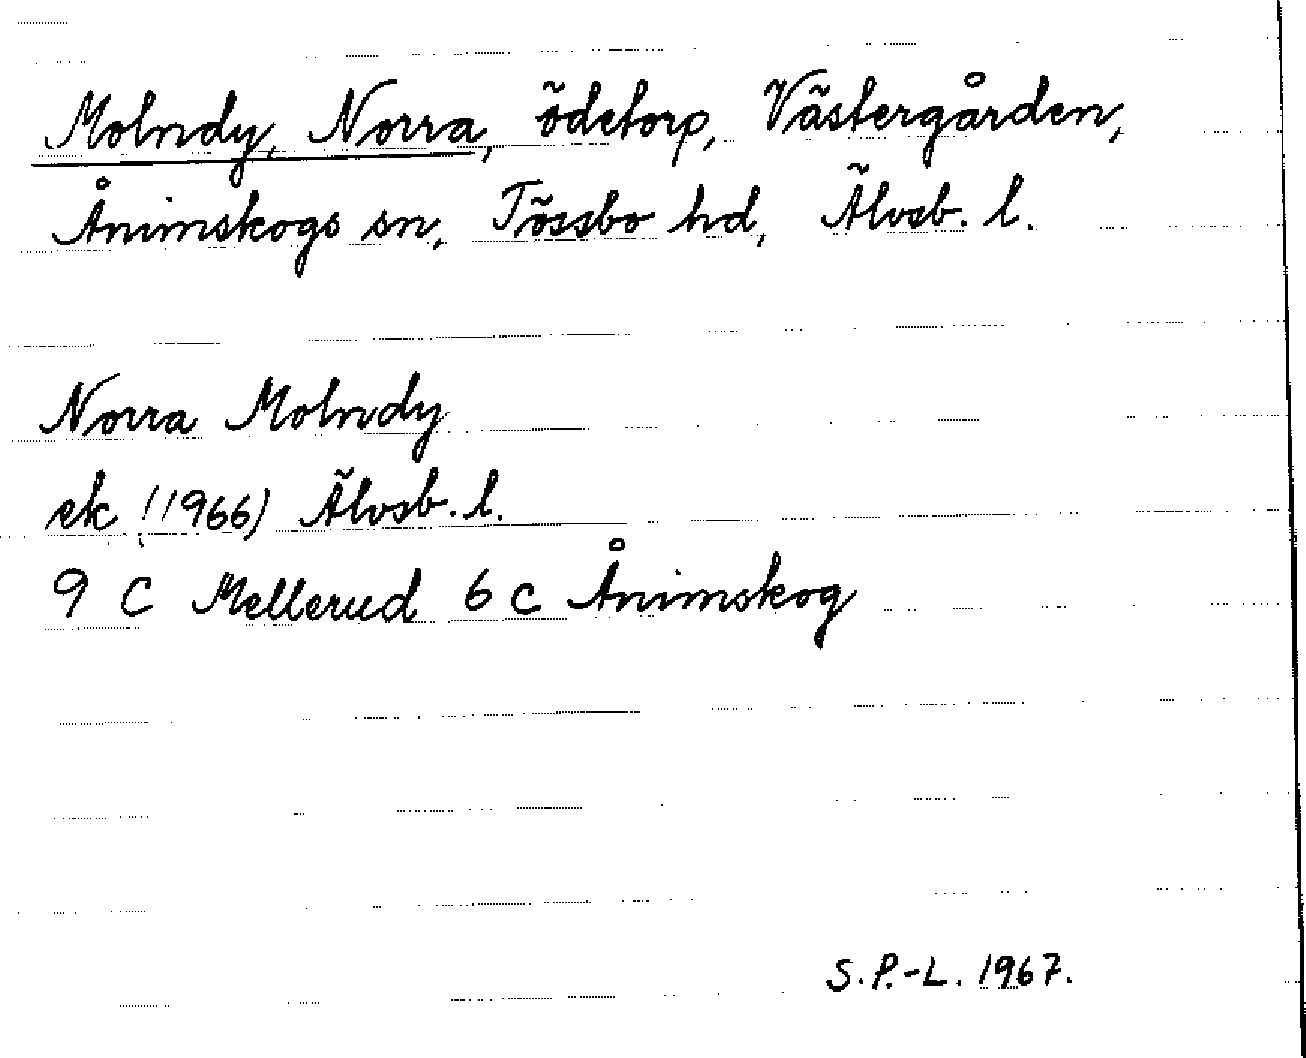 Molndy, Norra, ödetorp, Västergården,
Ånimskogs sn, Tössbo hd, Älvsb. l.
Norra Molndy
ek (1966) Älvsb. l.
9 C Mellerud 6 c Ånimskog
S. P.-L. 1967.